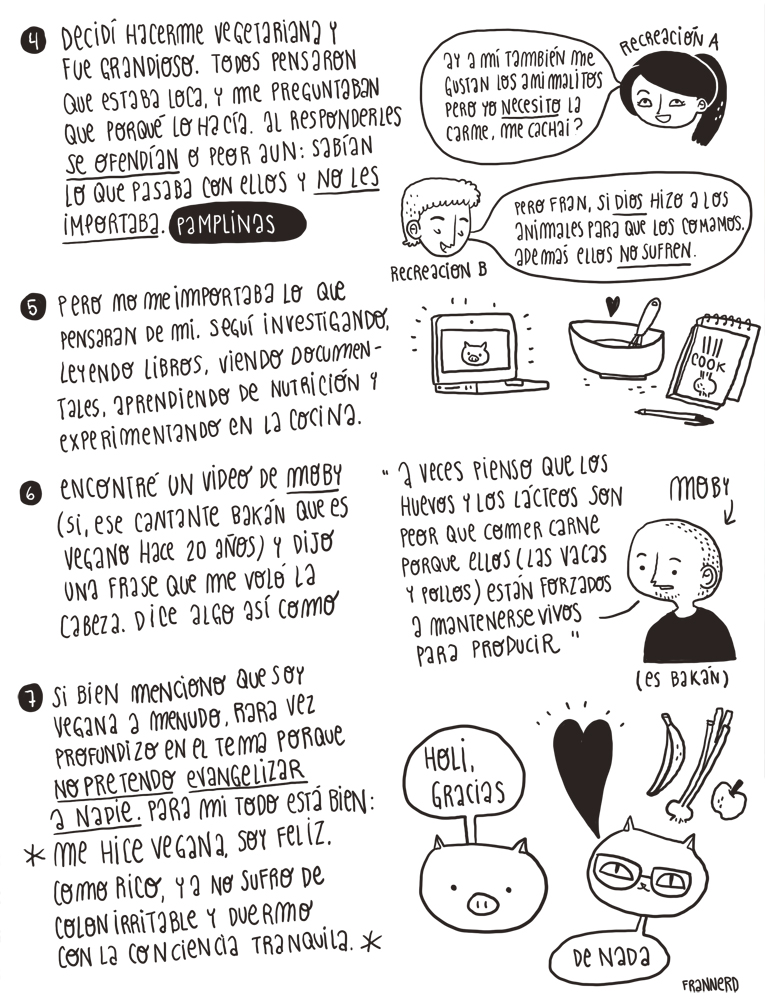 4 DECIDÍ HACERME VEGETARIANA Y
FUE GRANDIOSO. TODOS PENSARON
QUE ESTABA LOCA, Y ME PREGUNTABAN
QUE PORQUÉ LO HACÍA. AL RESPONDERLES
SE OFENDÍAN O PEOR AUN: SABÍAN
LO QUE PASABA CON ELLOS Y NO LES
IMPORTABA. PAMPLINAS
RECREACIÓN A
AY A MÍ TAMBIÉN ME
GUSTAN LOS ANIMALITOS
PERO YO NECESITO LA
CARME, ME CACHAI?
PERO FRAN, SI DIOS HIZO A LOS
ANIMALES PARA QUE LOS COMAMOS.
ADEMÁS ELLOS NO SUFREN.
RECREACION B
5 PERO NO ME IMPORTABA LO QUE
PENSARAN DE MI. SEGUÍ INVESTIGANDO,
LEYENDO LIBROS, VIENDO DOCUMEN-
TALES, APRENDIENDO DE NUTRICIÓN Y
EXPERIMENTANDO EN LA COCINA.
COOK
6 ENCONTRÉ UN VIDEO DE MOBY
(SI, ESE CANTANTE BAKÁN QUE ES
VEGANO HACE 20 AÑOS) Y DIJO
UNA FRASE QUE ME VOLÓ LA
CABEZA. DICE ALGO ASÍ COMO
" A VECES PIENSO QUE LOS
HUEVOS Y LOS LÁCTEOS SON
PEOR QUE COMER CARNE
PORQUE ELLOS (LAS VACAS
Y POLLOS) ESTÁN FORZADOS
A MANTENERSE VIVOS
PARA PRODUCIR "
MOBY
(ES BAKÁN)
7 SI BIEN MENCIONO QUE SOY
VEGANA A MENUDO, RARA VEZ
PROFUNDIZO EN EL TEMA PORQUE
NO PRETENDO EVANGELIZAR
A NADIE. PARA MI TODO ESTÁ BIEN:
* ME HICE VEGANA, SOY FELIZ.
COMO RICO, YA NO SUFRO DE
COLON IRRITABLE Y DUERMO
CON LA CONCIENCIA TRANQUILA. *
HOLI,
GRACIAS
DE NADA
FRANNERD